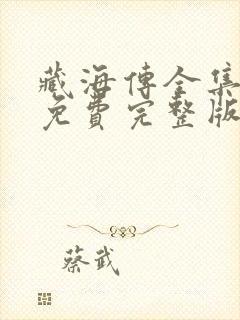 藏海傳全集
免費完整版
蔡武